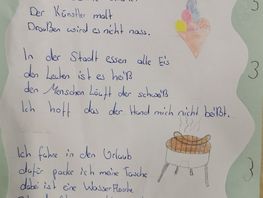 Der Künstler malt
Draußen wird es nicht nass.
In der Stadt essen alle Eis
den Leuten ist es heiß
den Menschen Läuft der schweiß
Ich hoff das der Hund mich nicht beißt.
Ich fahre in den Urlaub
dafür packe ich meine Tasche
dabei ist eine Wasserflasche
3
3